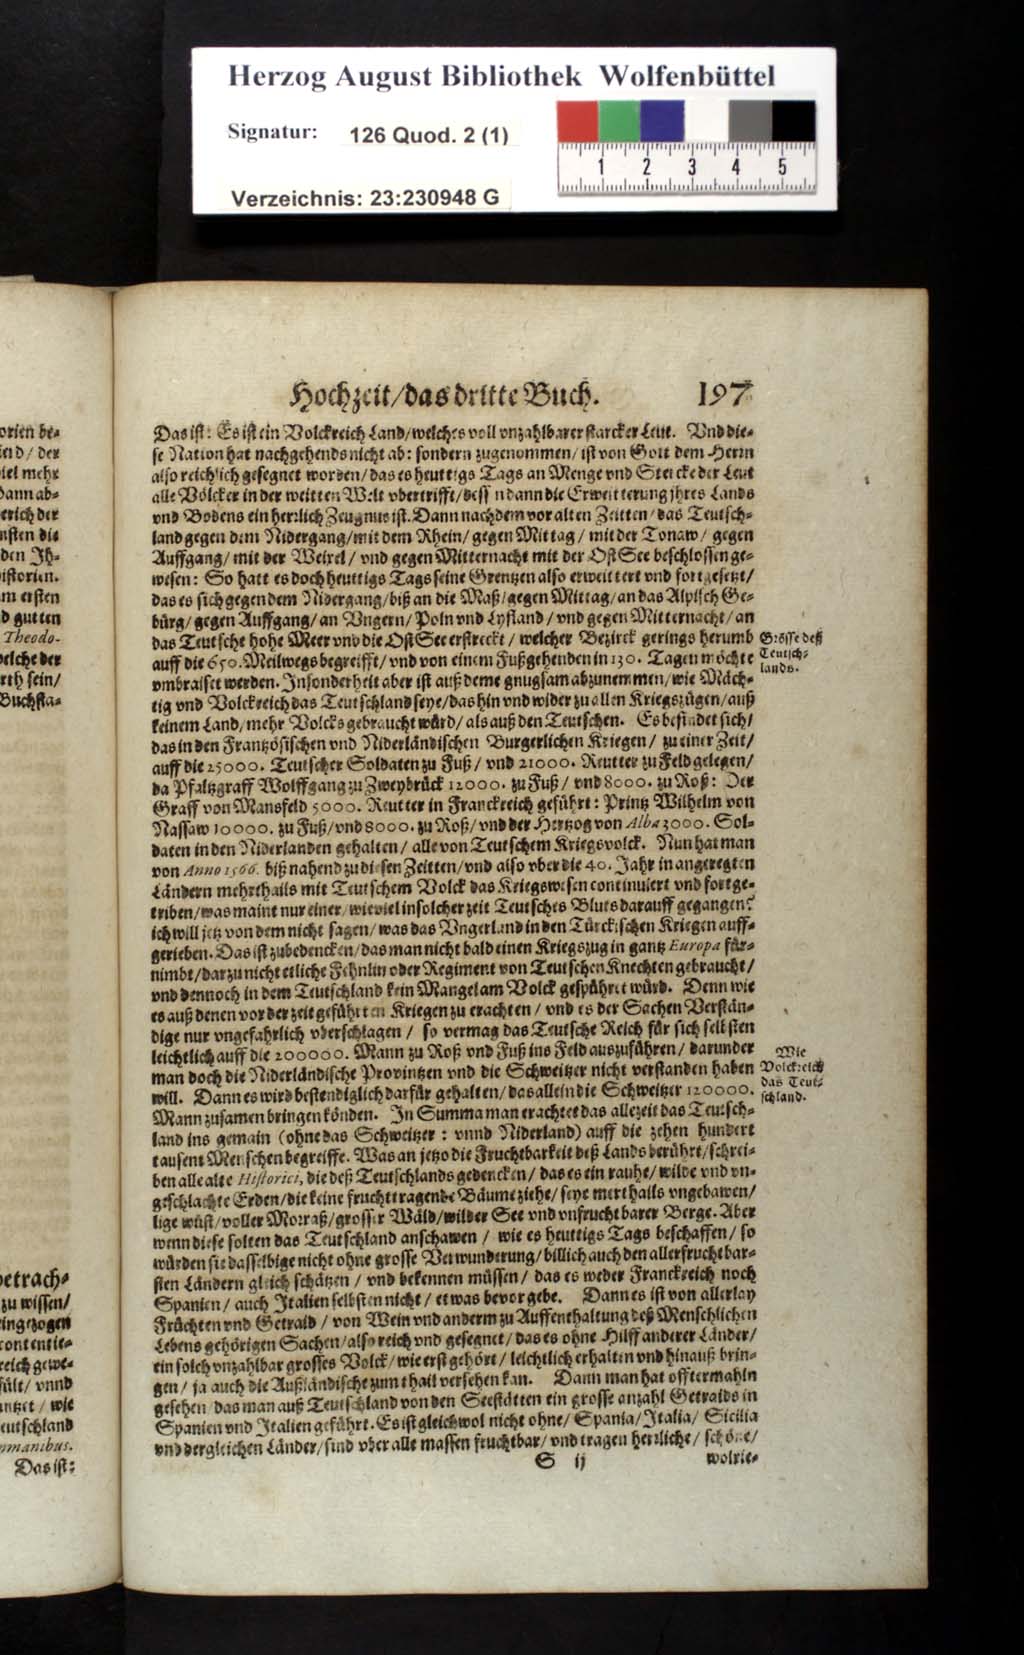 Herzog August Bibliothek Wolfenbüttel
Signatur: 126 Quod. 2 (1)
1 2 3 4 5
Verzeichnis: 23:230948 G
Hochzeit/das dritte Buch. 197
Das ist: Es ist ein Volckreich Land/welches voll vnzahlbarer starcker Leut. Vnd die-
se Nation hat nachgehends nicht ab: sondern zugenommen/ist von Gott dem Herrn
also reichlich gesegnet worden/das es heuttigs Tags an Menge vnd Stercke der Leut
alle Völcker in der weitten Welt vbertrifft/dessen dann die Erweitterung jhres Lands
vnd Bodens ein herzlich Zeugnus ist. Dann nachdem vor alten Zeitten/das Teutsch-
land gegen dem Nidergang/mit dem Rhein/gegen Mittag/mit der Tonaw/gegen
Auffgang/mit der Weixel/vnd gegen Mitternacht mit der OstSee beschlossen ge-
wesen: So hatt es doch heuttigs Tags seine Grentzen also erweittert vnd fortgesetzt/
das es sich gegen dem Nidergang/biß an die Maß/gegen Mittag/an das Alpisch Ge-
bürg/gegen Auffgang/an Vngern/Poln vnd Lyfland/vnd gegen Mitternacht/an
das Teutsche hohe Meer vnd die OstSee erstreckt/welcher Bezirck gerings herumb
auff die 650. Meilwegs begreifft/vnd von einem Fußgehenden in 130. Tagen möchte
vmbraiset werden. Insonderheit aber ist auß deme gnugsam abzunemmen/wie Mäch-
tig vnd Volckreich das Teutschland seye/das hin vnd wider zu allen Kriegszügen/auß
keinem Land/mehr Volcks gebraucht würd/als auß den Teutschen. Es befindet sich/
das in den Frantzösischen vnd Niderländischen Burgerlichen Kriegen/zu einer Zeit/
auff die 25000. Teutscher Soldaten zu Fuß/vnd 21000. Reutter zu Feld gelegen/
da Pfaltzgraff Wolffgang zu Zweybrück 12000. zu Fuß/vnd 8000. zu Roß: Der
Graff von Mansfeld 5000. Reutter in Franckreich geführt: Printz Wilhelm von
Nassaw 10000. zu Fuß/vnd 8000. zu Roß/vnd der Hertzog von Alba 3000. Sol-
daten in den Niderlanden gehalten/alle von Teutschem Kriegsvolck. Nun hat man
von Anno 1566. biß nahend zu diesen Zeitten/vnd also vber die 40. Jahr in angeregten
Ländern mehrthails mit Teutschem Volck das Kriegswesen continuiert vnd fortge-
triben/was maint nur einer/wieviel in solcher zeit Teutsches Bluts darauff gegangen?
ich will jetz von dem nicht sagen/was das Vngerland in den Türckischen Kriegen auff-
gerieben. Das ist zubedencken/das man nicht bald einen Kriegszug in gantz Europa für-
nimbt/darzu nicht etliche Fehnlin oder Regiment von Teutschen Knechten gebraucht/
vnd dennoch in dem Teutschland kein Mangel am Volck gespühret würd. Denn wie
es auß denen vor der zeit geführten Kriegen zu erachten/vnd es der Sachen Verstän-
dige nur vngefahrlich vberschlagen/so vermag das Teutsche Reich für sich selbsten
leichtlich auff die 200000. Mann zu Roß vnd Fuß ins Feld auszuführen/darunder
man doch die Niderländische Provintzen vnd die Schweitzer nicht verstanden haben
will. Dann es wird bestendiglich darfür gehalten/das allein die Schweitzer 120000.
Mann zusamen bringen könden. In Summa man erachtet das allezeit das Teutsch-
land ins gemain (ohne das Schweitzer: vnnd Niderland) auff die zehen hundert
tausent Menschen begreiffe. Was an jetzo die Fruchtbarkeit deß Lands berührt/schrei-
ben alle alte Historici, die deß Teutschlands gedencken/das es ein rauhe/wilde vnd vn-
geschlachte Erden/die keine fruchttragende Bäume ziehe/seye mertheils vngebawen/
lige wüst/voller Morraß/grosser Wäld/wilder See vnd vnfruchtbarer Berge. Aber
wenn diese solten das Teutschland anschawen/wie es heuttigs Tags beschaffen/so
würden sie dasselbige nicht ohne grosse Verwunderung/billich auch den allerfruchtbar-
sten Ländern gleich schätzen/vnd bekennen müssen/das es weder Franckreich noch
Spanien/auch Italien selbsten nicht/etwas bevor gebe. Dann es ist von allerlay
Früchten vnd Getraid/von Wein vnd anderm zu Auffenthaltung deß Menschlichen
Lebens gehörigen Sachen/also reich vnd gesegnet/das es ohne Hilff anderer Länder/
ein solch vnzahlbar grosses Volck/wie erst gehört/leichtlich erhalten vnd hinauß brin-
gen/ja auch die Außländische zum thail versehen kan. Dann man hat offtermahln
gesehen/das man auß Teutschland von den Seestätten ein grosse anzahl Getraids in
Spanien vnd Italien geführt. Es ist gleichwol nicht ohne/Spania/Italia/Sicilia
vnd dergleichen Länder/sind vber alle massen fruchtbar/vnd tragen herzliche/schöne/
S ij wolrie-
Grösse deß
Teutsch-
lands.
Wie
Volckreich
das Teut-
schland.
orien be-
iel mehr
Dann ab-
erich der
nsten die
den Ih-
istorien.
m ersten
d gutten
Theodo-
welche der
rth sein/
Buchsta-
betrach-
zu wissen/
ingezogen
contentie-
reich gewe-
fült/vnnd
antzet/wie
eutschland
nmanibus.
Das ist: